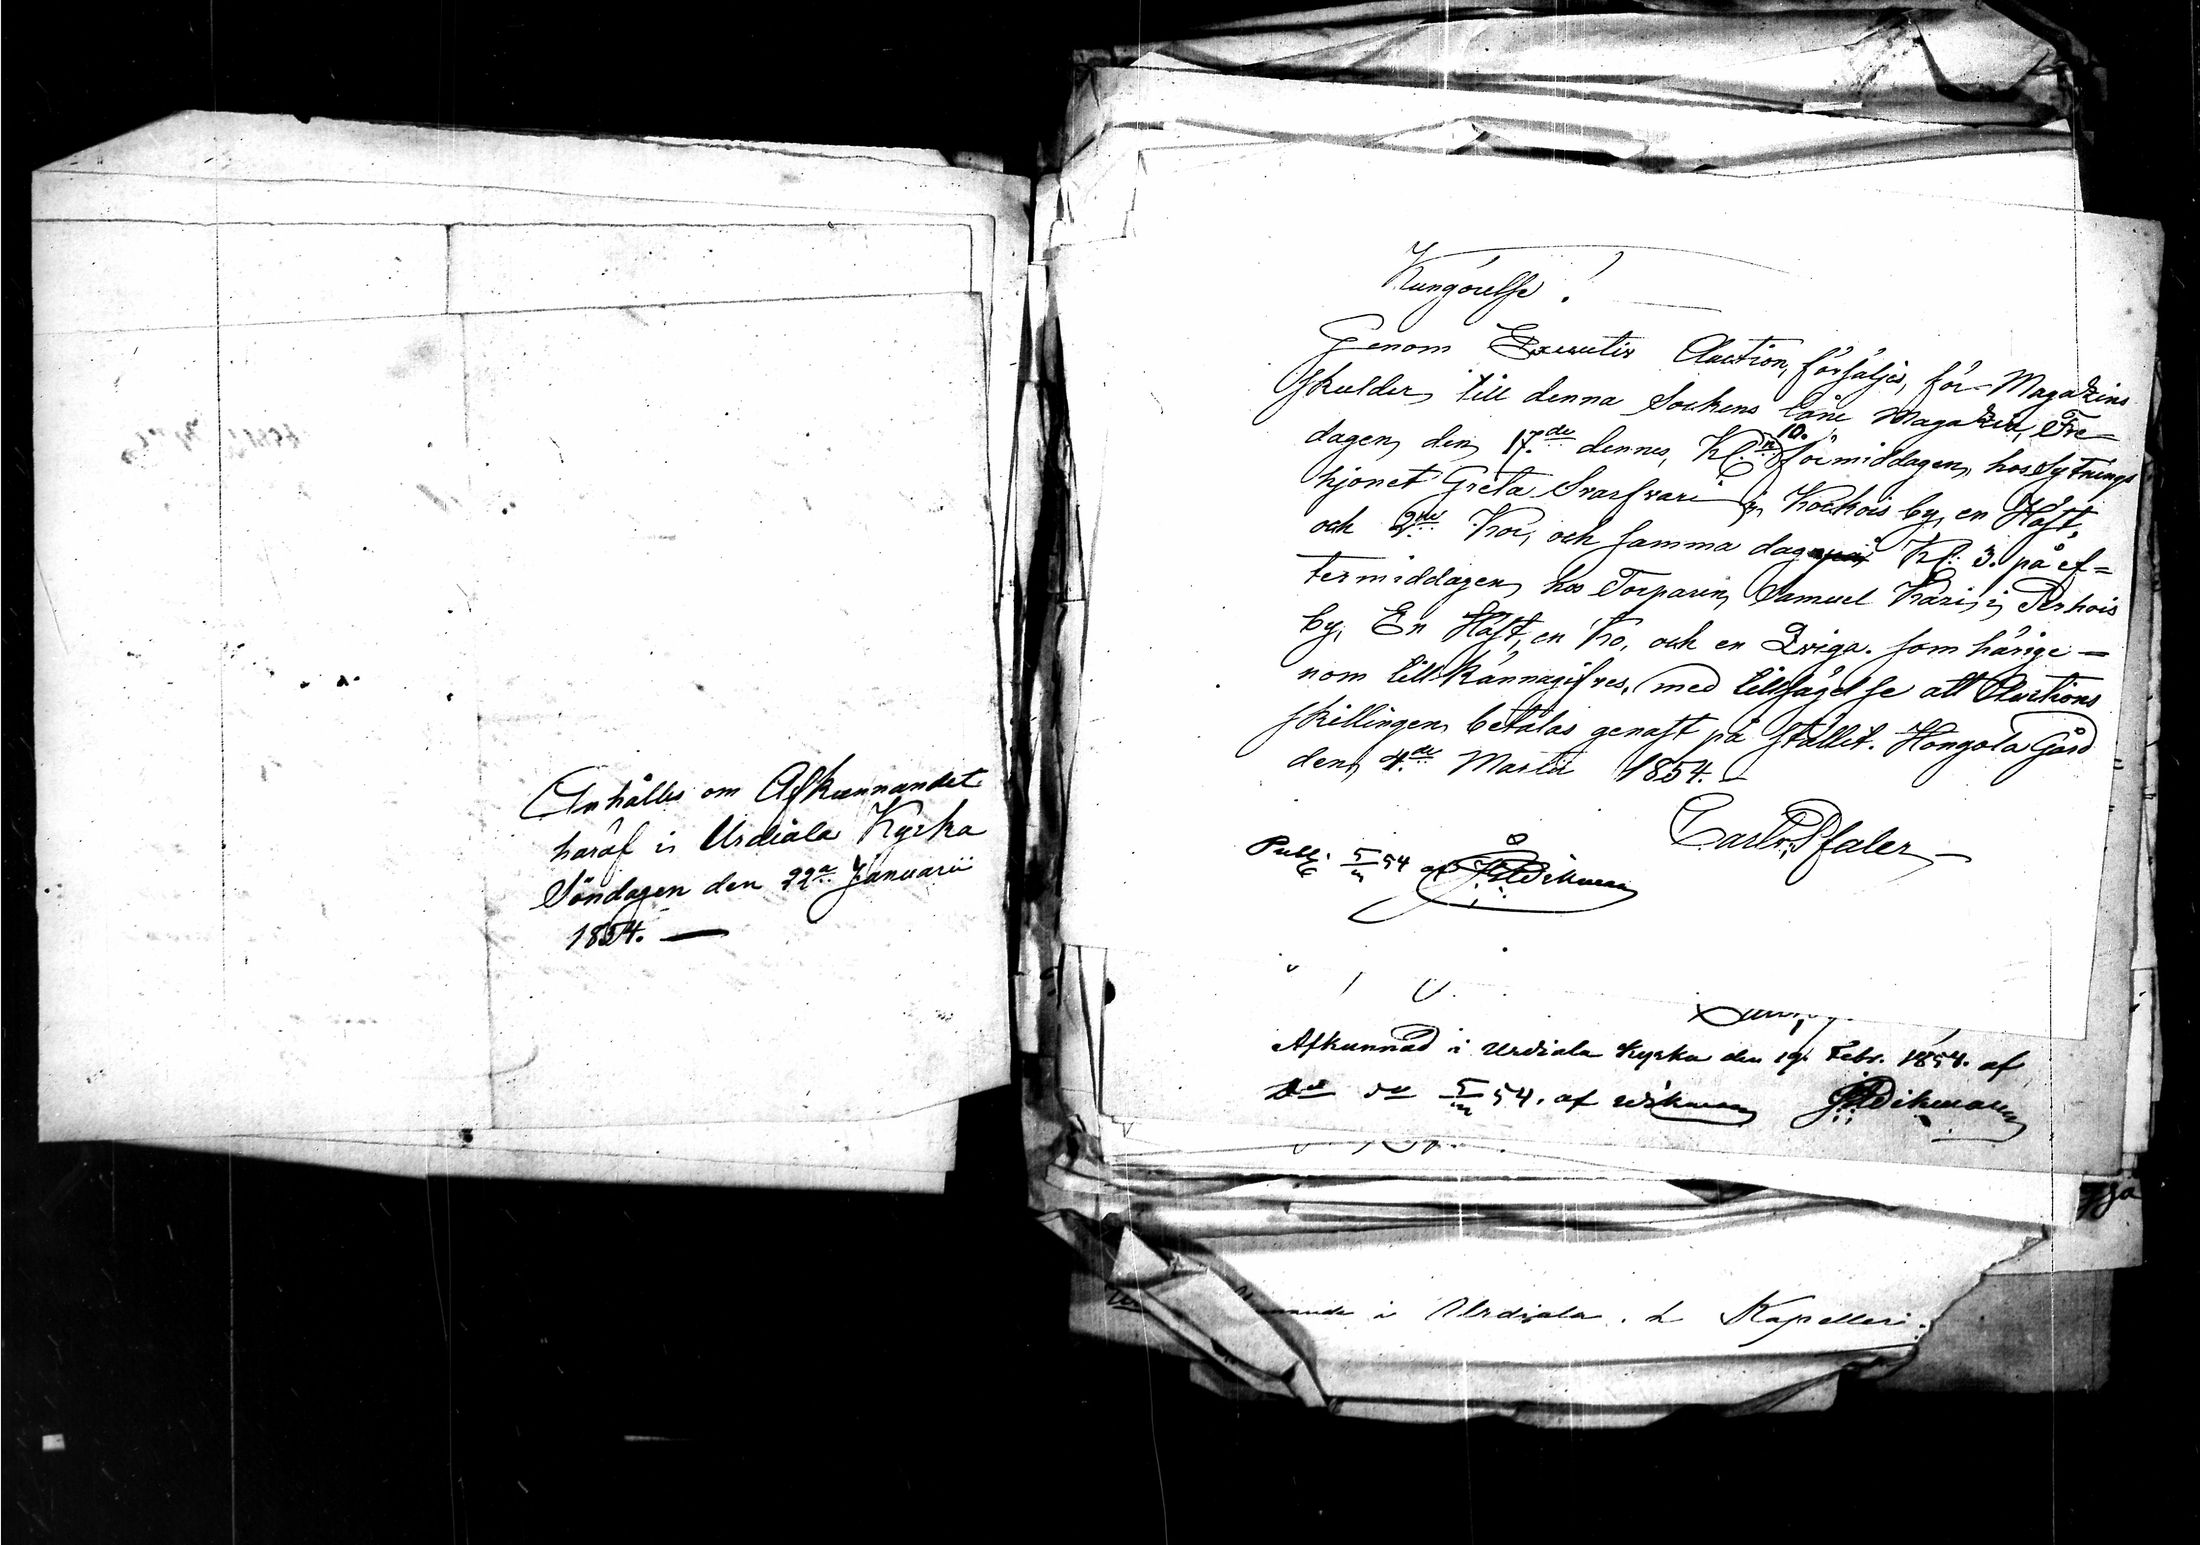 Anhålles om Afkunnandet
häraf i Urdiala Kyrka
Söndagen den 22a Januarii
1854. —
Kungörelse!
Genom Executiv Auction, försäljes, för Magazins
skulder till denna Sockens låne Magazin, Fre-
dagen den 17de dennes, Kl. 10. förmiddagen, hos Sytnings
hjonet Greta i Kockois by, en Häst,
och 2ne Kor, och samma dag Kl: 3. på ef=
termiddagen hos Torparen Samuel Kari i Perhois
by, En Häst, en Ko, och en Qviga. som härige-
nom till Kännagifves, med tillsägelse att Auctions
skillingen betalas genast på stället. Hongola Gård
den 4de Martii 1854.
Carl v. Pfaler
Publ. 5/3 54 af Wikman
Afkunnad i Urdiala Kyrka den 19 Febr. 1854. af
Do do 5/3 54. af Wikman Wikman
i Urdiala . Kapelleri.